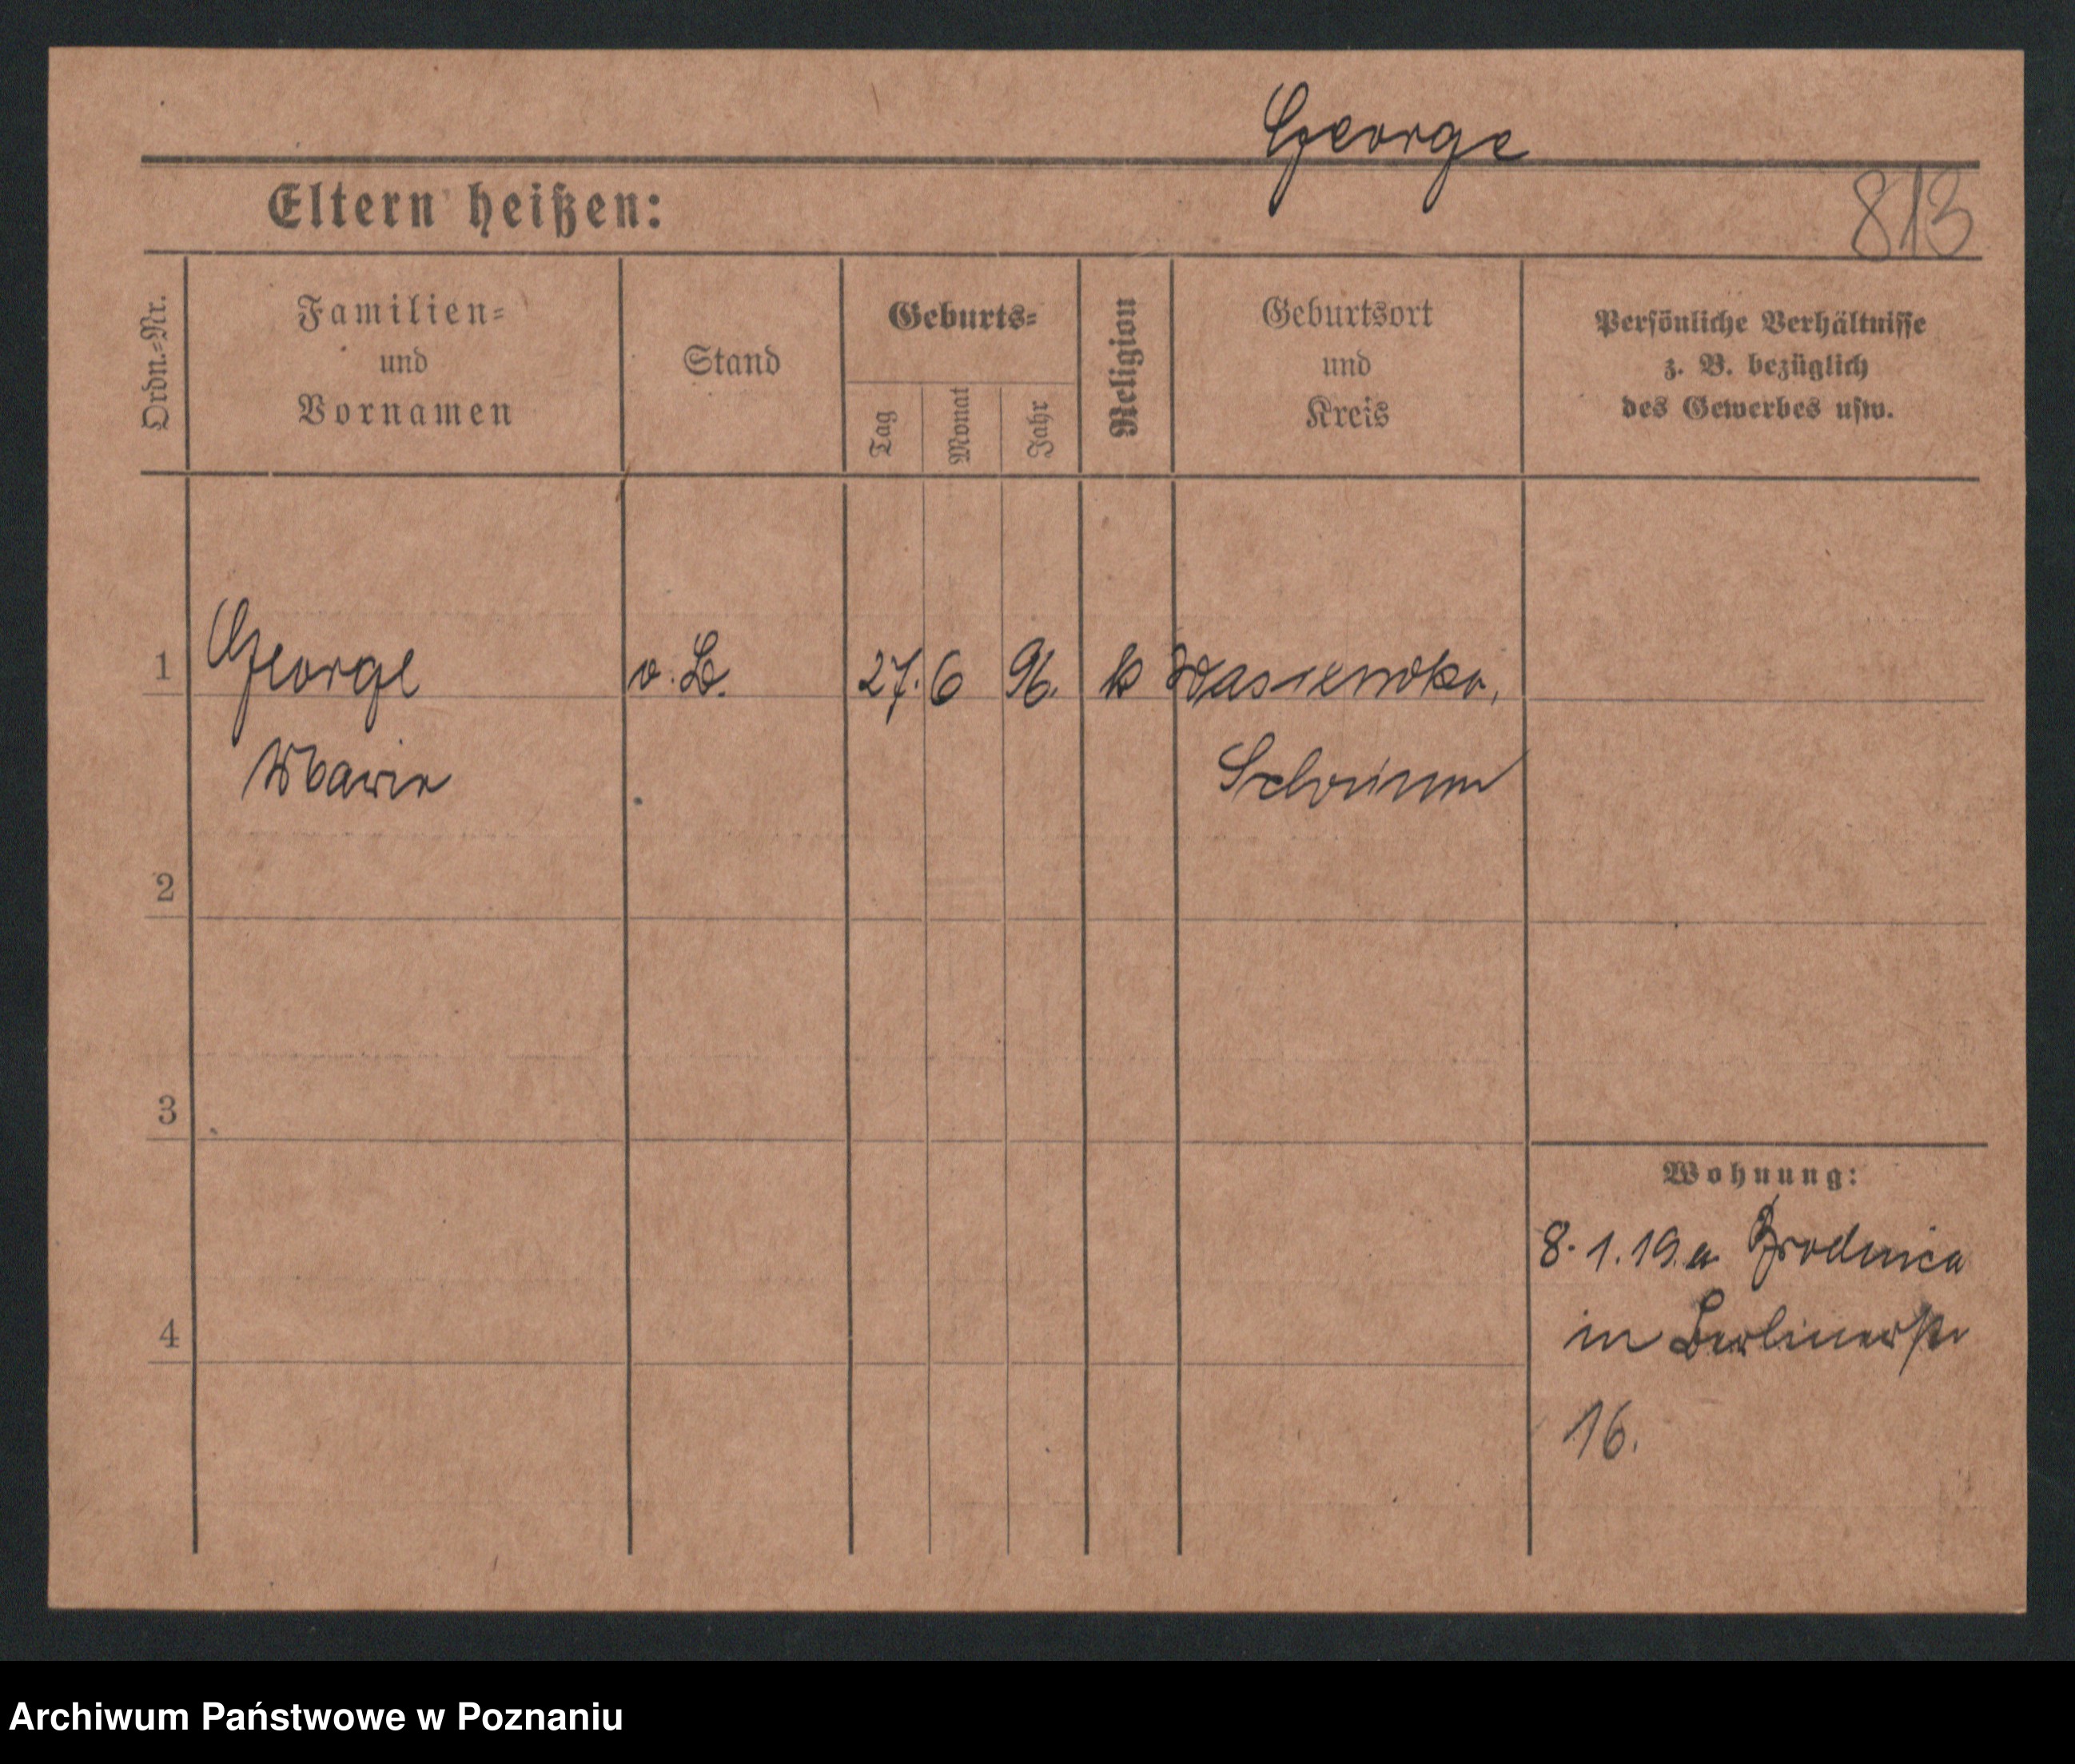 George
Eltern heißen:
813
Ordn.-Nr.
Familien-
und
Vornamen
Stand
Geburts-
Tag
Monat
Jahr
Religion
Geburtsort
und
Kreis
Persönliche Verhältnisse
z. B. bezüglich
des Gewerbes usw.
1 George 27. 6 96. k
Maria Schrimm
2
3
Wohnung:
8. 1. 19. a Brodnica
4
in Berlinerstr
16.
Archiwum Państwowe w Poznaniu